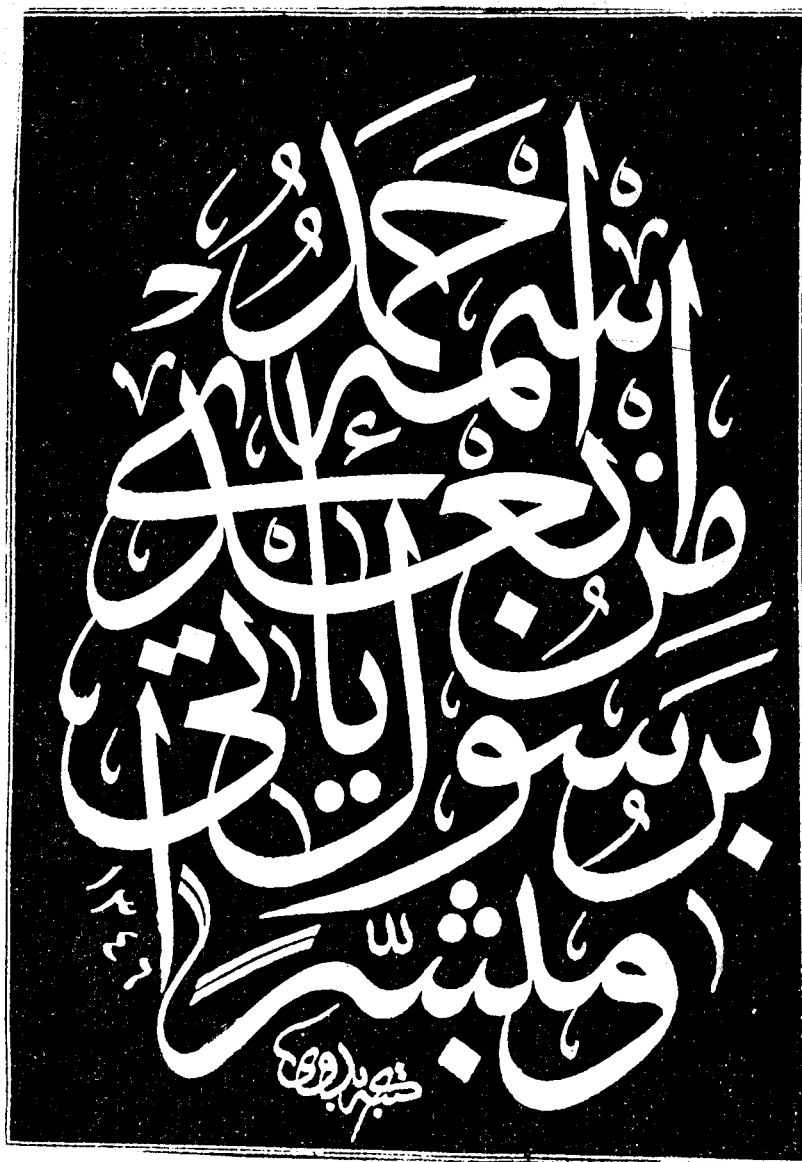 وَمُبَشِّرًا
بِرَسُولٍ يَأْتِي
مِنْ بَعْدِي
اسْمُهُ أَحْمَدُ
١٣٤٦
كتبه بدوي